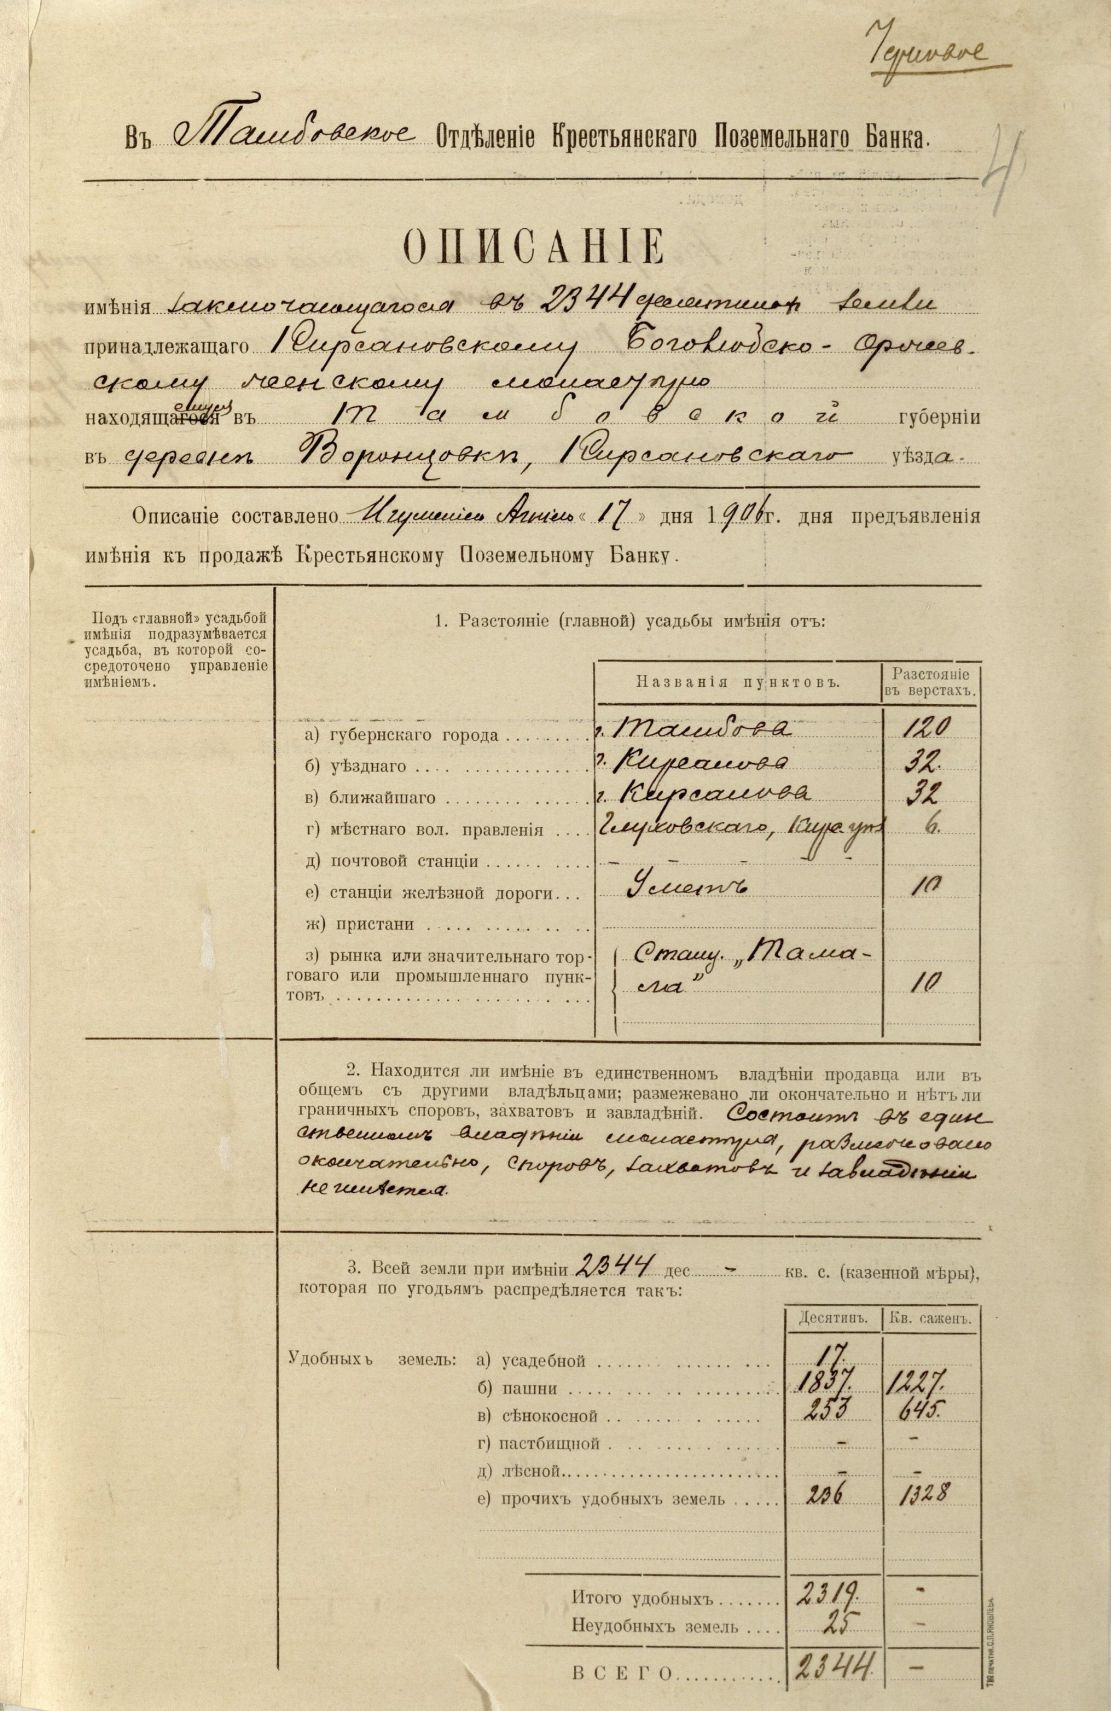 Черновое
Въ Тамбовское Отдѣленіе Крестьянскаго Поземельнаго Банка.
4
ОПИСАНІЕ
имѣнія заключающагося въ 2344 десятинахъ земли
принадлежащаго Кирсановскому Боголюбско-
скому женскому монастырю
находящагося въ Тамбовской губерніи
въ деревнѣ Воронцовкѣ, Кирсановскаго уѣзда.
Описаніе составлено Игуменіею «17» дня 1906 г. дня предъявленія
имѣнія къ продажѣ Крестьянскому Поземельному Банку.
Подъ «главной» усадьбой
имѣнія подразумѣвается
усадьба, въ которой со-
средоточено управленіе
имѣніемъ.
1. Разстояніе (главной) усадьбы имѣнія отъ:
Названія пунктовъ. Разстояніе
въ верстахъ.
а) губернскаго города . . . . . . . . г. Тамбова 120
б) уѣзднаго . . . . . . . . . . . . . . . г. Кирсанова 32.
в) ближайшаго . . . . . . . . . . . . . г. Кирсанова 32
г) мѣстнаго вол. правленія . . . . Глуховскаго, Кирс. у. 6.
д) почтовой станціи . . . . . . . . – – – – –
е) станціи желѣзной дороги . . . Уметъ 10
ж) пристани . . . . . . . . . . . .
з) рынка или значительнаго тор- Станц. „Тама-
говаго или промышленнаго пунк- ла" 10
товъ . . . . . . . . . . . . . . . . . . . . . .
2. Находится ли имѣніе въ единственномъ владѣніи продавца или въ
общемъ съ другими владѣльцами; размежевано ли окончательно и нѣтъ ли
граничныхъ споровъ, захватовъ и завладѣній. Состоитъ въ един
ственномъ владѣніи монастыря, размежевано
окончательно, споровъ, захватовъ и завладѣній
не имѣется.
3. Всей земли при имѣніи 2344 дес – кв. с. (казенной мѣры),
которая по угодьямъ распредѣляется такъ:
Десятинъ. Кв. сажень.
Удобныхъ земель: а) усадебной . . . . . . . . . . . . . 17.
б) пашни . . . . . . . . . . . . . . . . . 1837. 1227.
в) сѣнокосной . . . . . . . . . . . . 253 645.
г) пастбищной . . . . . . . . . . . . – –
д) лѣсной . . . . . . . . . . . . . . . . . – –
е) прочихъ удобныхъ земель . . . . . 236 1328
Итого удобныхъ . . . . . . . 2319. –
Неудобныхъ земель . . . . 25 –
ВСЕГО . . . . . . . . . . . . 2344. –